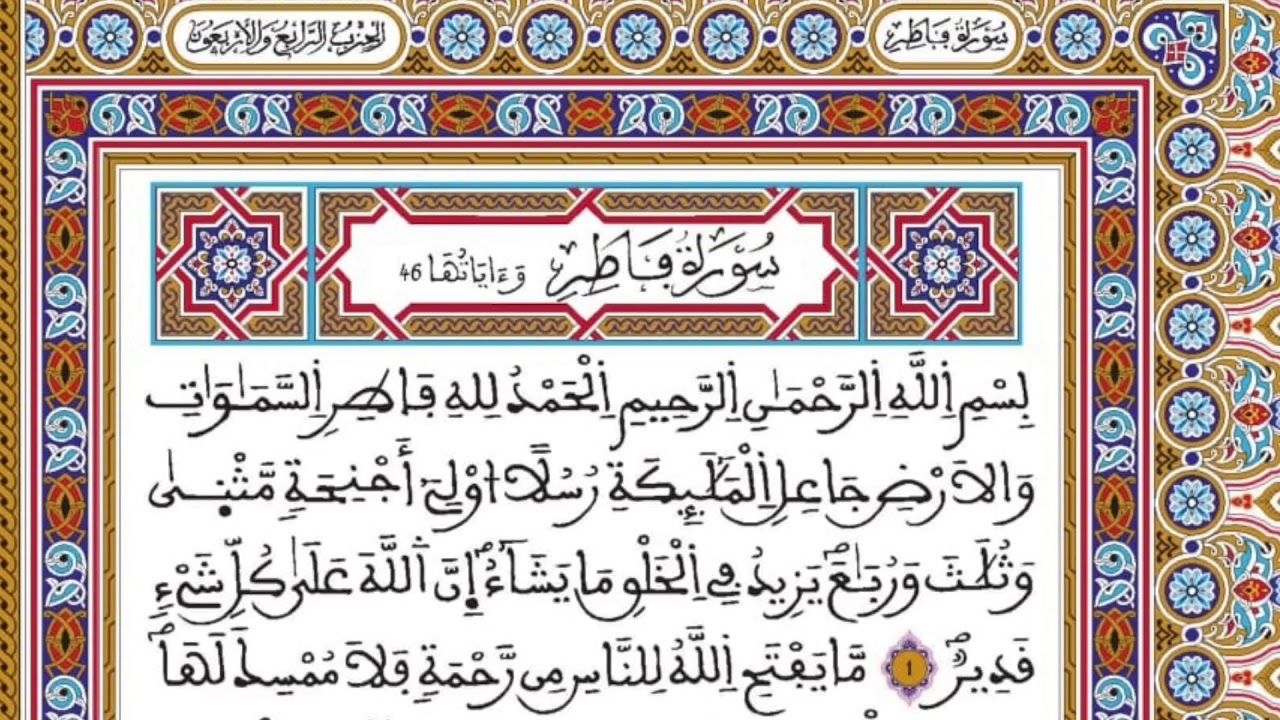 سُورَةُ فَاطِرٍ
الحِزْبُ الرَّابِعُ وَالأَرْبَعُونَ
سُورَةُ فَاطِرٍ وَءَايَاتُهَا 46
بِسْمِ اِللَّهِ اِلرَّحْمَٰنِ اِلرَّحِيمِ اِلْحَمْدُ لِلهِ فَاطِرِ اِلسَّمَٰوَٰتِ
وَالَارْضِ جَاعِلِ اِلْمَلَٰٓئِكَةِ رُسُلًا ا۟وْلِےٓ أَجْنِحَةٖ مَّثْنۭيٰ
وَثُلَٰثَ وَرُبَٰعَۖ يَزِيدُ فِے اِلْخَلْقِ مَا يَشَآءُۖ اِ۪نَّ اَ۬للَّهَ عَلَىٰ كُلِّ شَےْءٖ
قَدِيرٞۖ 1 مَّا يَفْتَحِ اِللَّهُ لِلنَّاسِ مِن رَّحْمَةٖ فَلَا مُمْسِكَ لَهَاۖ